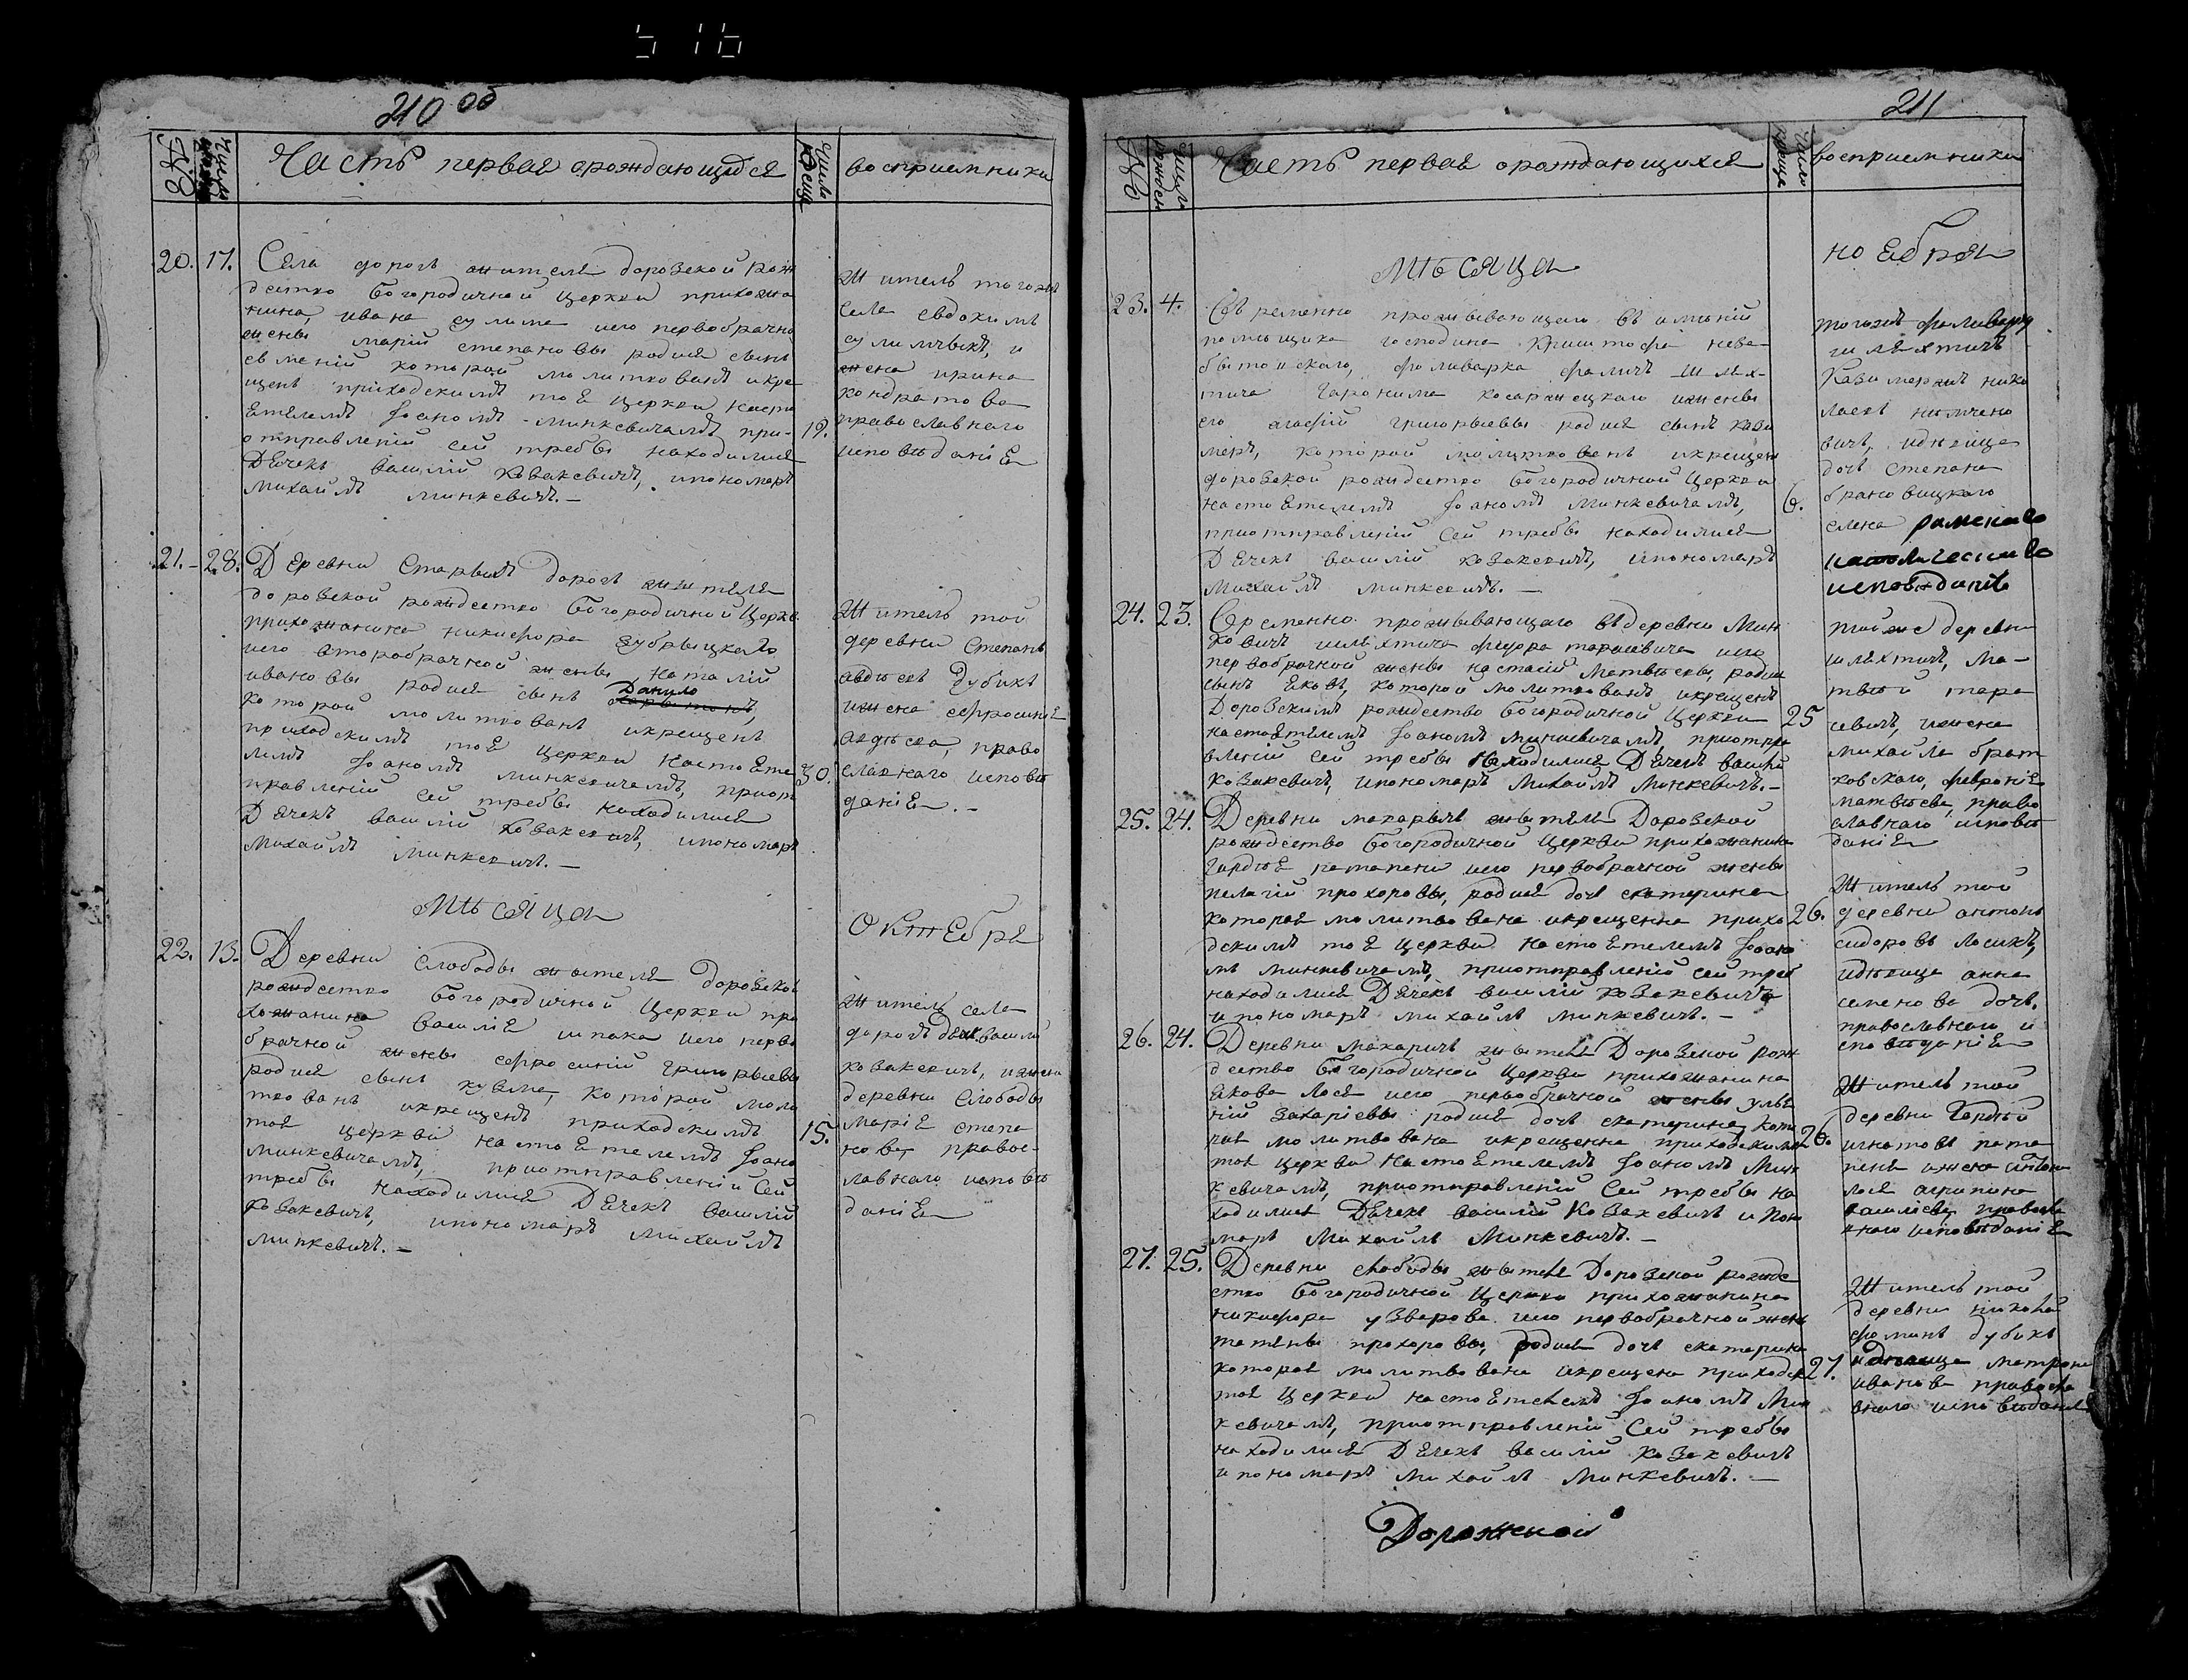 210 об
№
Число рожден
Часть первая орождающихся
Число креще
восприемники
20. 17. Села дорогъ жителя доровской рож
дество богородичной Церкви прихожа
нина, ивана сулима иего первобрачно
жены марій степановы родися сынъ
который молитвованъ икре
щенъ приходскимъ тоя Церкви насто
ятелемъ Іоаномъ Минкевичамъ при-
отправленій сей требы находилися
Дячекъ василій Козакевичъ, ипономаръ
Михаилъ Минкевичъ.-
19.
Житель тогожъ
села евдокимъ
и
жена ирина
кондратова
православнаго
исповѣданія
21.- 28. Деревни Старыхъ Дорогъ жителя
доровской рождество богородичной Церкв
прихожанина никифора зубрыцкаго
иего второбрачной жены наталій
ивановы родися сынъ Данило
который молитвованъ икрещенъ
приходскимъ тоя Церкви настояте
лемъ Іоаномъ Минкевичамъ, приот
правленій сей требы находилися
Дячекъ василій Козакевичъ, ипономаръ
Михаилъ Минкевичъ.-
30.
Житель той
деревни Степанъ
авдѣевъ дубикъ
ижена ефросинія
авдѣева, право
славнаго исповѣ
данія.-
МѢсяца
Октября
22. 13. Деревни Слободы жителя доровской
рождество богородичной Церкви при
хожанина василія шпака иего перво
брачной жены ефросиній григорьевы
родися сынъ кузма, который моли
твованъ икрещенъ приходскимъ
тоя церкви настоятелемъ Іоано
минкевичамъ, приотправленій Сей
требы находилися Дячекъ василій
Козакевичъ, ипономаръ Михаилъ
минкевичъ.-
15.
Житель села
дорогъ дякъ василій
козакевичъ, ижена
деревни Слободы
марія степа
нова, правос-
лавнаго исповѣ
данія
211
№
Число рожден
Часть первая орождающихся
Число креще
восприемники
МѢсяца
ноября
23. 4. проживающаго въ имѣній
помѣщика господина Криштофа
фолварка фаличъ шлях-
тича Гаронима ижены
его агафій григорьевы родися сынъ кази
меръ, который молитвованъ икрещен
доровской рождество богородичной Церкви
настоятелемъ Іоаномъ Минкевичамъ,
приотправленій Сей требы находилися
Дячекъ василій козакевичъ, ипономаръ
Михаилъ Минкевичъ.-
6.
тогожъ фолварку
шляхтичъ
Казимержъ нико
лаевъ
вичъ, идѣвица
дочь степана
елена римскаго
католическаго
исповѣданія
24. 23. Временно проживающаго въдеревни Мин
ковичъ шляхтича федора тарасевича иего
первобрачной жены настасій Матвѣевы, родися
сынъ Яковъ, который молитвованъ икрещенъ
Доровскимъ рождество богородичной Церкви
настоятелемъ Іоаномъ минкевичамъ, приотпра
вленій сей требы находилися Дячекъ василій
Козакевичъ, ипономаръ Михаилъ Минкевичъ.-
25
тойже деревни
шляхтичъ, ма-
твѣй тара
севичъ, ижена
михайла брат
ковскаго, февронія
матвѣева, право
славнаго исповѣ
данія
25. 24. Деревни макаричъ жителя Доровской
рождество богородичной Церкви прихожанина
гордѣя патапени иего первобрачной жены
пелагій прохоровы, родися дочь екатерина
которая молитвована икрещенна прихо
дскимъ тоя церкви настоятелемъ Іоано
мъ минкевичамъ, приотправленій сей треб
находилися Дячекъ василій козакевичъ
ипономаръ михаилъ минкевичъ.-
26.
Житель той
деревни антонъ
сидоровъ лосикъ,
идѣвица анна
семенова дочь,
православнаго и
сповѣданія
26. 24. Деревни макаричъ жителя Доровской рож
дество богородичной Церкви прихожанина
Якова Лося иего первобрачной жены улья
ній захаріевы родися дочь екатерина, кото
рая молитвована икрещенна приходскимъ
тоя церкви настоятелемъ Іоаномъ Мин
кевичамъ, приотправленій Сей требы на
ходилися Дячекъ василій Козакевичъ и поно
маръ Михаилъ Минкевичъ.-
26.
Житель той
деревни Гордѣй
игнатовъ пата
пеня ижена
лося агрипина
василіева, правосла
внаго исповѣданія
27. 25. Деревни слободы жителя Доровской рожде
ство богородичной Церкви прихожанина
никифора уЗварова иего первобрачной жены
татяны прохоровы, родися дочь екатерина
которая молитвована икрещена приходск
тоя Церкви настоятелемъ Іоаномъ Мин
кевичамъ, приотправленій Сей требы
находилися Дячекъ василій Козакевичъ
ипономаръ Михаилъ Минкевичъ.-
27.
Житель той
деревни николай
фоминъ дубикъ
идѣвица матрона
иванова правосла
внаго исповѣданія
Дорожской